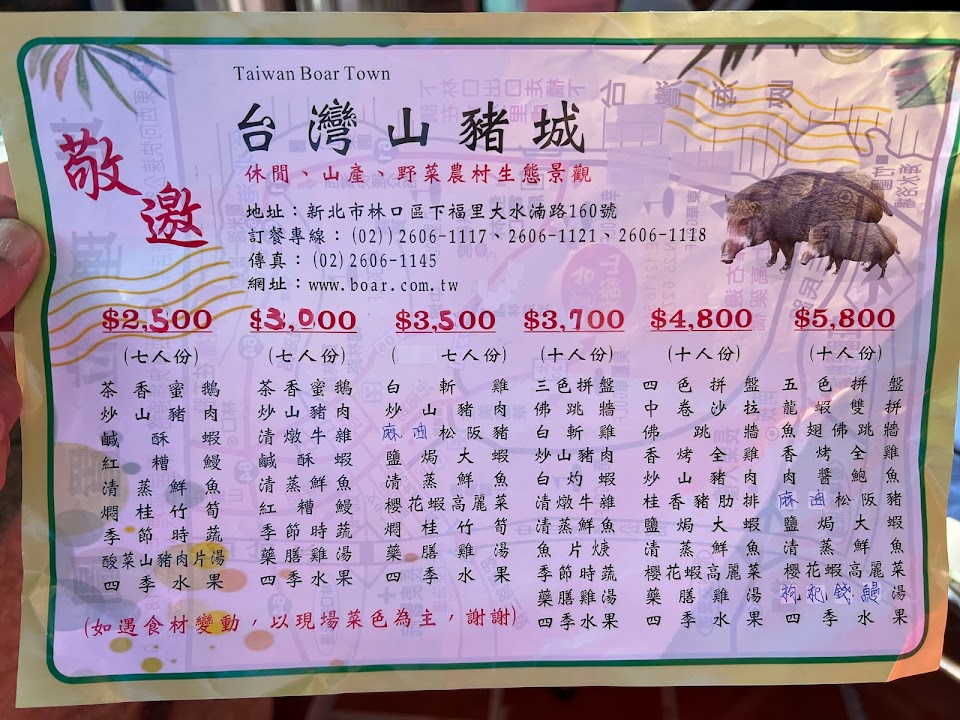 Taiwan Boar Town
台灣山豬城
敬邀
休閒、山產、野菜農村生態景觀
地址：新北市林口區下福里大水湳路160號
訂餐專線：(02))2606-1117、2606-1121、2606-1118
傳真：(02)2606-1145
網址：www.boar.com.tw
$2,500
(七人份)
茶香蜜鵝
炒山豬肉
鹹酥蝦
紅糟鰻
清蒸鮮魚
燜桂竹筍
季節時蔬
酸菜山豬肉片湯
四季水果
$3,000
(七人份)
茶香蜜鵝
炒山豬肉
清燉牛雜
鹹酥蝦
清蒸鮮魚
紅糟鰻
季節時蔬
藥膳雞湯
四季水果
$3,500
(七人份)
白斬雞
炒山豬肉
麻油松阪豬
鹽焗大蝦
清蒸鮮魚
櫻花蝦高麗菜
燜桂竹筍
藥膳雞湯
四季水果
$3,700
(十人份)
三色拼盤
佛跳牆
白斬雞
炒山豬肉
白灼蝦
清燉牛雜
清蒸鮮魚
魚片焿
季節時蔬
藥膳雞湯
四季水果
$4,800
(十人份)
四色拼盤
中卷沙拉
佛跳牆
香烤全雞
炒山豬肉
桂香豬肋排
鹽焗大蝦
清蒸鮮魚
櫻花蝦高麗菜
藥膳雞湯
四季水果
$5,800
(十人份)
五色拼盤
龍蝦雙拼
魚翅佛跳牆
香烤全雞
肉醬鮑魚
麻油松阪豬
鹽焗大蝦
清蒸鮮魚
櫻花蝦高麗菜
枸杞錢鰻湯
四季水果
(如遇食材變動，以現場菜色為主，謝謝)